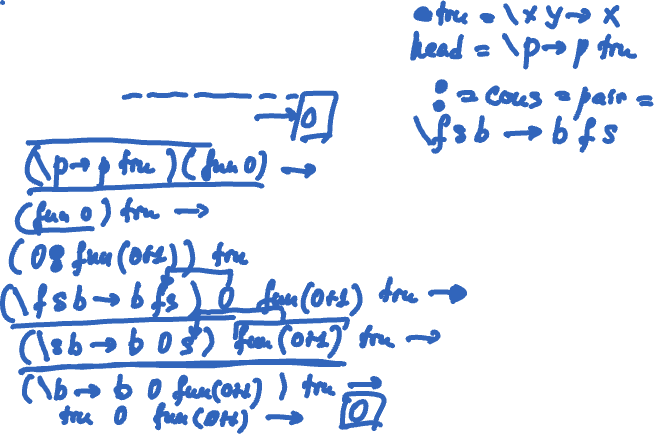 tru = \x y → x
head = \p → p tru
: = cons = pair =
\f s b → b f s
→ 0
(\p → p tru)(fun 0) →
(fun 0) tru →
(0 : fun(0+1)) tru
(\f s b → b f s) 0 fun(0+1) tru →
(\s b → b 0 s) fun(0+1) tru →
(\b → b 0 fun(0+1)) tru →
tru 0 fun(0+1) → 0